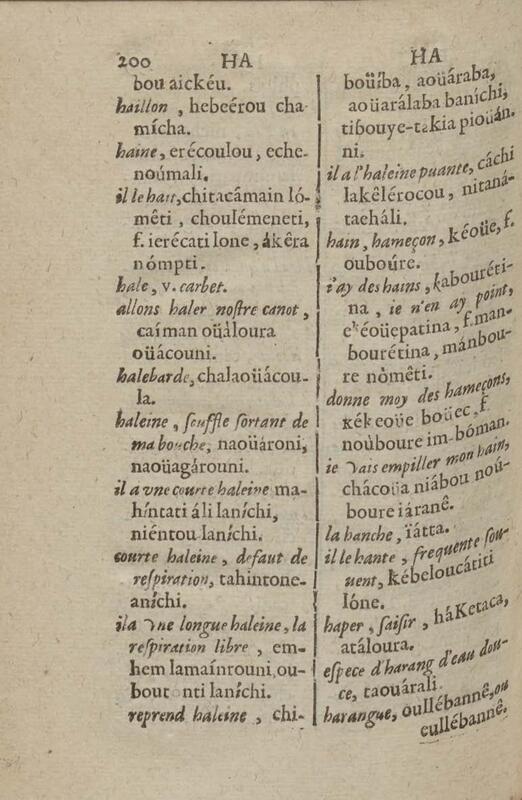 200 HA
bou aickéu.
haillon , hebeérou cha
mícha.
haine, erécoulou, eche-
noúmali.
il le hait, chitacámain ló-
mêti , choulémeneti,
f. ierécati lone, ákêra
nómpti.
hale, v. carbet.
allons haler nostre canot,
caíman oüáloura
oüácouni.
halebarde, chalaoüácou-
la.
haleine, souffle sortant de
ma bouche, naoüároni,
naoüagárouni.
il a vne courte haleine ma-
híntati áli laníchi,
niéntou laníchi.
courte haleine, defaut de
respiration, tahintone-
aníchi.
il a vne longue haleine, la
respiration libre, em-
hem lamaínrouni, ou-
bout nti laníchi.
reprend haleine , chi-
HA
boüíba, aoüáraba,
aoüarálaba baníchi,
tibouye-takia pioüán.
ni.
il a l'haleine puante, cáchi
lakêlérocou, nitaná-
taeháli.
hain, hameçon, kéoüe, f.
ouboúre.
i'ay des hains, kabouréti-
na , ie n'en ay point,
ekéoüepatina, f. man-
bourétina, mánbou-
re nòmêti.
donne moy des hameçons,
kékeoüe boüec, f.
noùboure im-bóman.
ie vais empiller mon hain,
chácoüa niábou noú-
boure iáranê.
la hanche, ïátta.
il le hante, frequente sou-
uent, kébeloucátiti
lóne.
haper, saisir, háKetaca,
atáloura.
espece d'harang d'eau dou-
ce, taouárali.
harangue, oullébannê, ou
eullébannê.